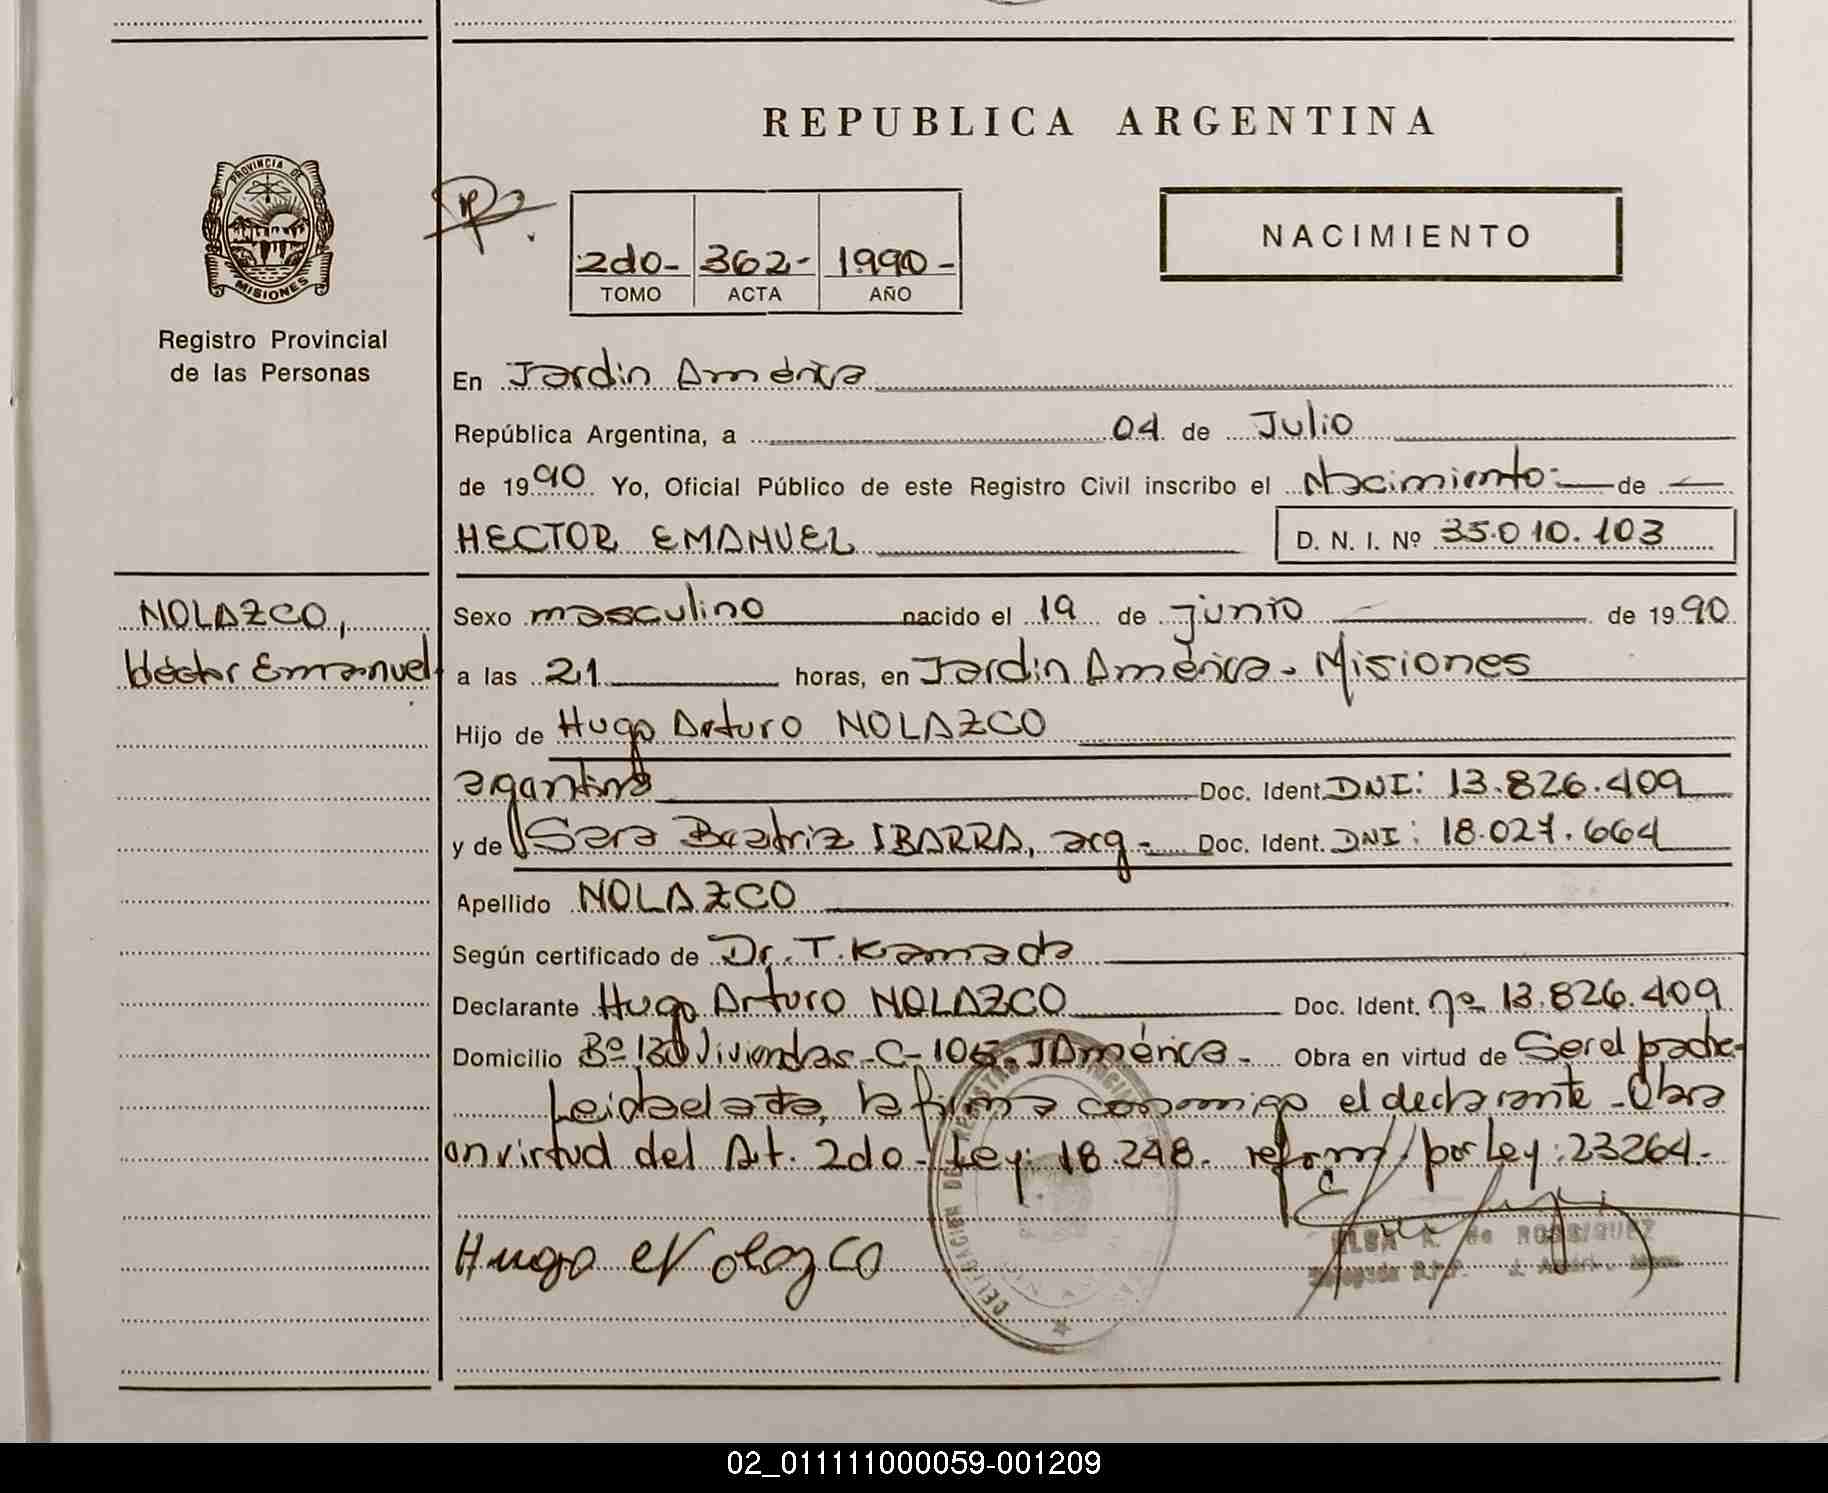 REPUBLICA ARGENTINA
PROVINCIA DE
MISIONES
Registro Provincial
de las Personas
2do- 362- 1990-
TOMO ACTA AÑO
NACIMIENTO
En Jardín América
República Argentina, a 04 de Julio
de 1990 Yo, Oficial Público de este Registro Civil inscribo el Nacimiento- de
HECTOR EMANUEL D. N. I. Nº 35.010.103
NOLAZCO,
Héctor Emanuel
Sexo masculino nacido el 19 de junio de 1990
a las 21 horas, en Jardín América- Misiones
Hijo de Hugo Arturo NOLAZCO
argentino Doc. Ident. DNI: 13.826.409
y de Sara Beatriz IBARRA, arg- Doc. Ident. DNI: 18.027.664
Apellido NOLAZCO
Según certificado de Dr. T. Kamada
Declarante Hugo Arturo NOLAZCO Doc. Ident. nº 13.826.409
Domicilio Bº 130 Viviendas-C-105. J América- Obra en virtud de Ser el padre-
Leida el acta, la firma conmigo el declarante-Obra
en virtud del Art. 2do- Ley: 18.248- reform/ por Ley: 23264.-
Hugo A Nolazco
ELSA R. de RODRIGUEZ
Delegada R.P.P.
02_011111000059-001209